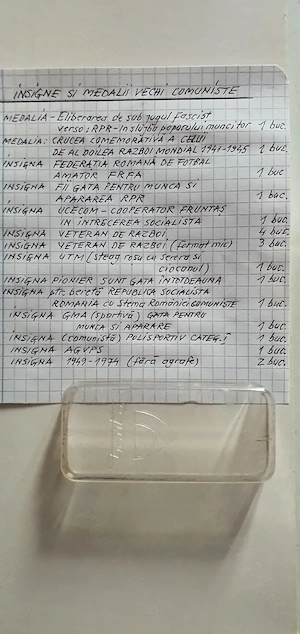 INSIGNE SI MEDALII VECHI COMUNISTE
MEDALIA - Eliberarea de sub jugul fascist
verso: RPR - In slujba poporului muncitor 1 buc.
MEDALIA: CRUCEA COMEMORATIVĂ A CELUI
DE AL DOILEA RAZBOI MONDIAL 1941-1945 1 buc.
INSIGNA FEDERATIA ROMANA DE FOTBAL
AMATOR FRFA 1 buc
INSIGNA FII GATA PENTRU MUNCA SI
APARAREA RPR 1 buc.
INSIGNA UCECOM - COOPERATOR FRUNTAS
IN INTRECEREA SOCIALISTA 1 buc.
INSIGNA VETERAN DE RAZBOI 4 buc.
INSIGNA VETERAN DE RAZBOI (format mic) 3 buc.
INSIGNA UTM (steag rosu cu secera si
ciocanul) 1 buc.
INSIGNA PIONIER SUNT GATA INTOTDEAUNA 1 buc.
INSIGNA ptr. beretă REPUBLICA SOCIALISTA
ROMANIA cu stema României comuniste 1 buc.
INSIGNA GMA (sportivă) GATA PENTRU
MUNCA SI APARARE 1 buc.
INSIGNA (comunistă) POLISPORTIV CATEG. I 1 buc.
INSIGNA AGVPS 1 buc.
INSIGNA 1949-1974 (fără agrafe) 2 buc.